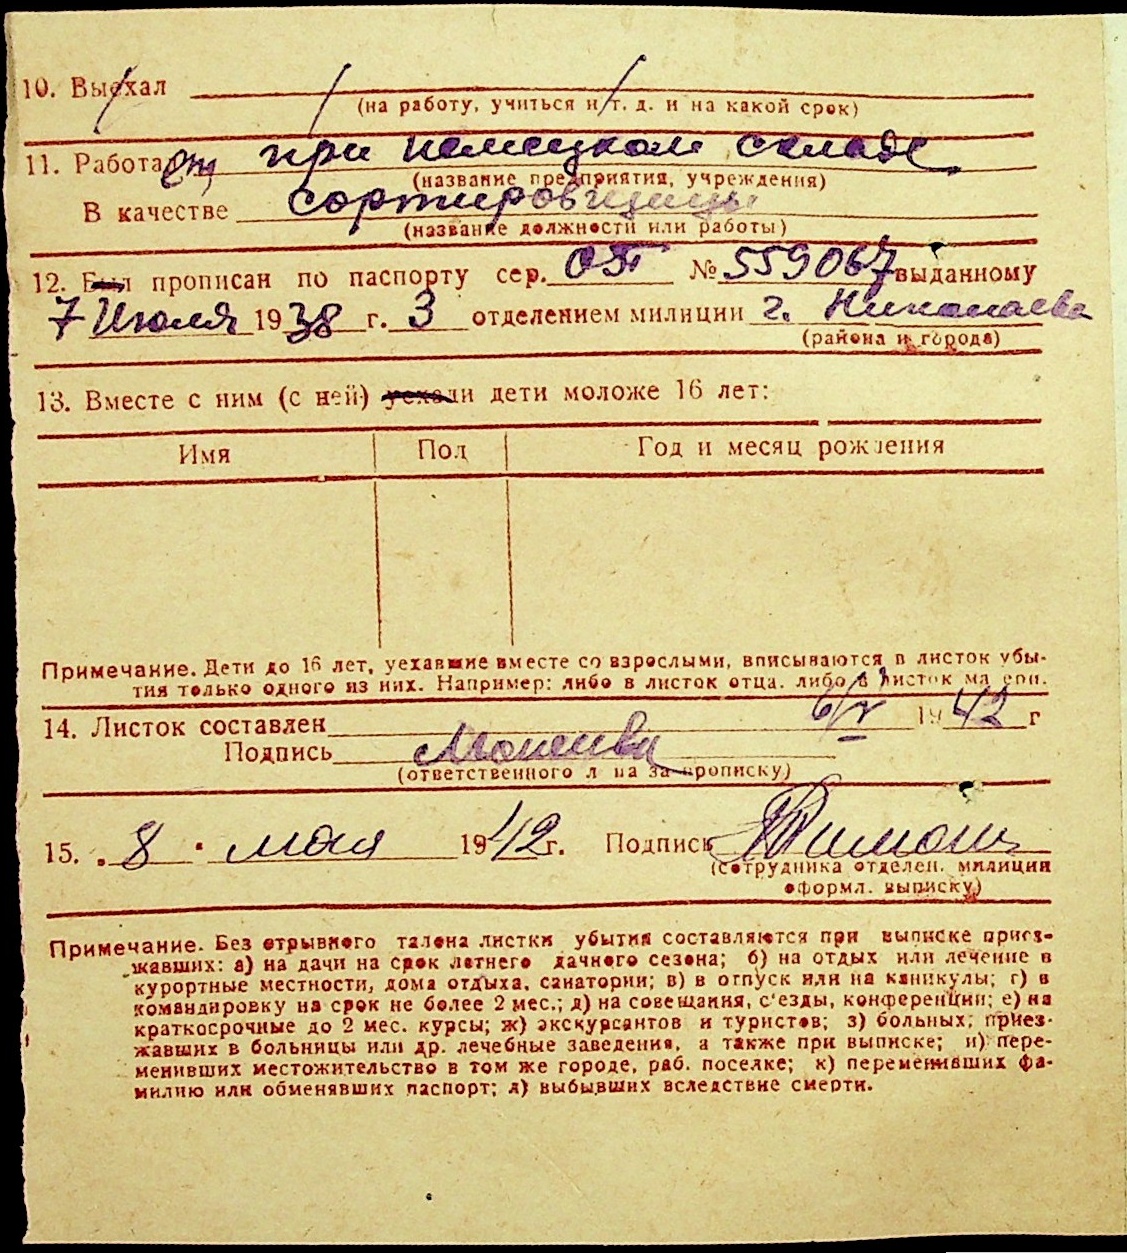 10. Выехал
(на работу, учиться и т. д. и на какой срок)
11. Работает при немецком складе
(название предприятия, учреждения)
В качестве сортировщицы
(название должности или работы)
12. Был прописан по паспорту сер. ОТ № 559067 выданному
7 Июля 1938 г. 3 отделением милиции г. Николаева
(района и города)
13. Вместе с ним (с ней) уехали дети моложе 16 лет:
Имя Пол Год и месяц рождения
Примечание. Дети до 16 лет, уехавшие вместе со взрослыми, вписываются в листок убы-
тия только одного из них. Например: либо в листок отца, либо в листок матери.
14. Листок составлен 6/V 1942 г
Подпись
(ответственного лица за прописку)
15. „8" мая 1942 г. Подпись
(сотрудника отделен. милиции
оформл. выписку)
Примечание. Без отрывного талона листки убытия составляются при выписке приез-
жавших: а) на дачи на срок летнего дачного сезона; б) на отдых или лечение в
курортные местности, дома отдыха, санатории; в) в отпуск или на каникулы; г) в
командировку на срок не более 2 мес.; д) на совещания, с'езды, конференции; е) на
краткосрочные до 2 мес. курсы; ж) экскурсантов и туристов; з) больных, приез-
жавших в больницы или др. лечебные заведения, а также при выписке; и) пере-
менивших местожительство в том же городе, раб. поселке; к) переменивших фа-
милию или обменявших паспорт; л) выбывших вследствие смерти.